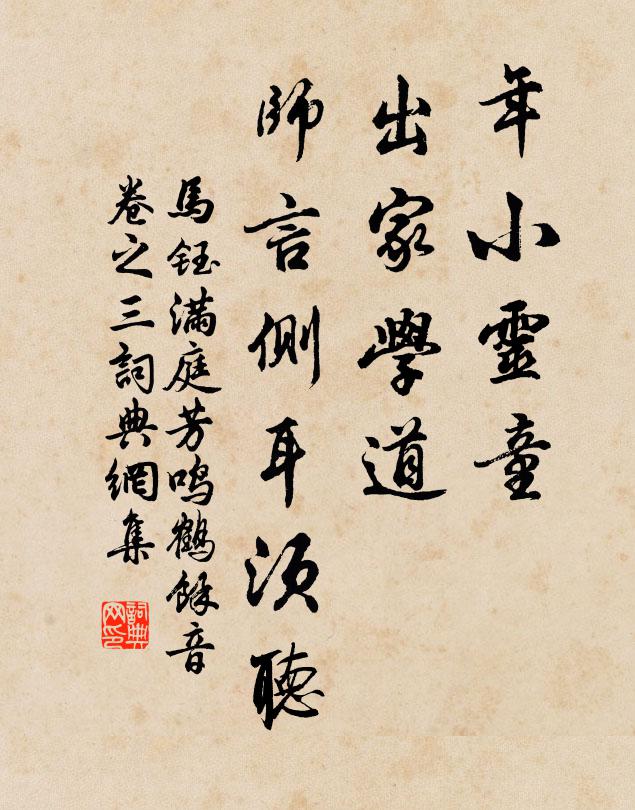 年小靈童
出家學道
師言側耳須聽
馬鈺滿庭芳鳴鶴餘音
卷之三詞典網集
詞典网印